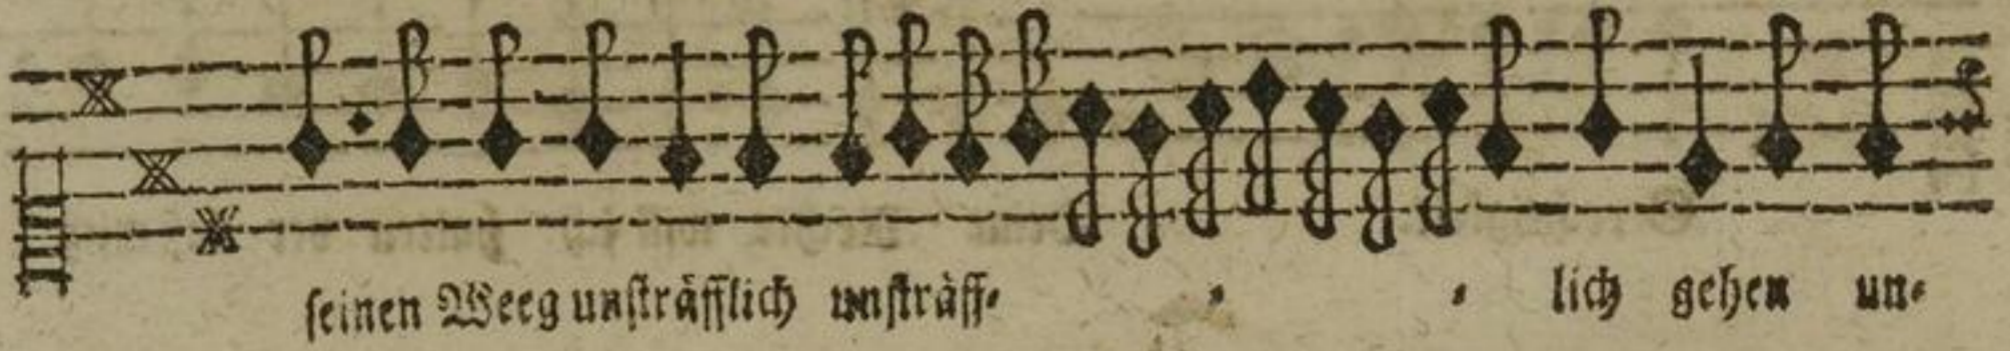 seinen Weeg unsträfflich unsträff- - - lich gehen un-